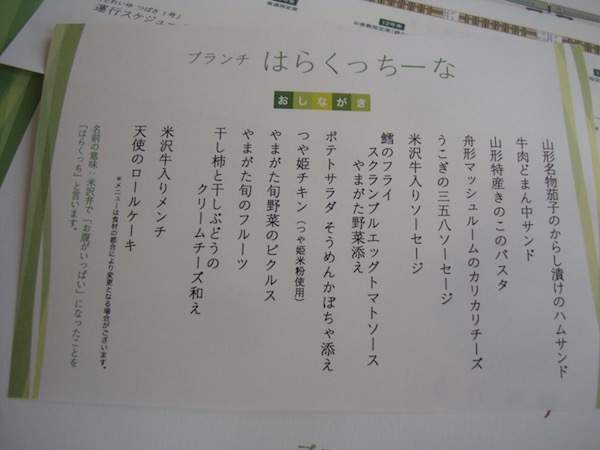 とれいゆ つばさ 1号
運行スケジュー
ブランチ はらくっちーな
おしながき
山形名物茄子のからし漬けのハムサンド
牛肉どまん中サンド
山形特産きのこのパスタ
舟形マッシュルームのカリカリチーズ
うこぎの三五八ソーセージ
米沢牛入りソーセージ
鱈のフライ
スクランブルエッグトマトソース
やまがた野菜添え
ポテトサラダ そうめんかぼちゃ添え
つや姫チキン(つや姫米粉使用)
やまがた旬野菜のピクルス
やまがた旬のフルーツ
干し柿と干しぶどうの
クリームチーズ和え
米沢牛入りメンチ
天使のロールケーキ
*メニューは食材の都合により変更となる場合がございます。
名前の意味:米沢弁で「お腹がいっぱい」になったことを
「はらくっち」と言います。